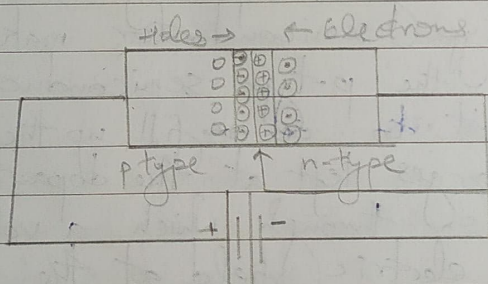 Holes → ← Electrons
p type n-type
+ -